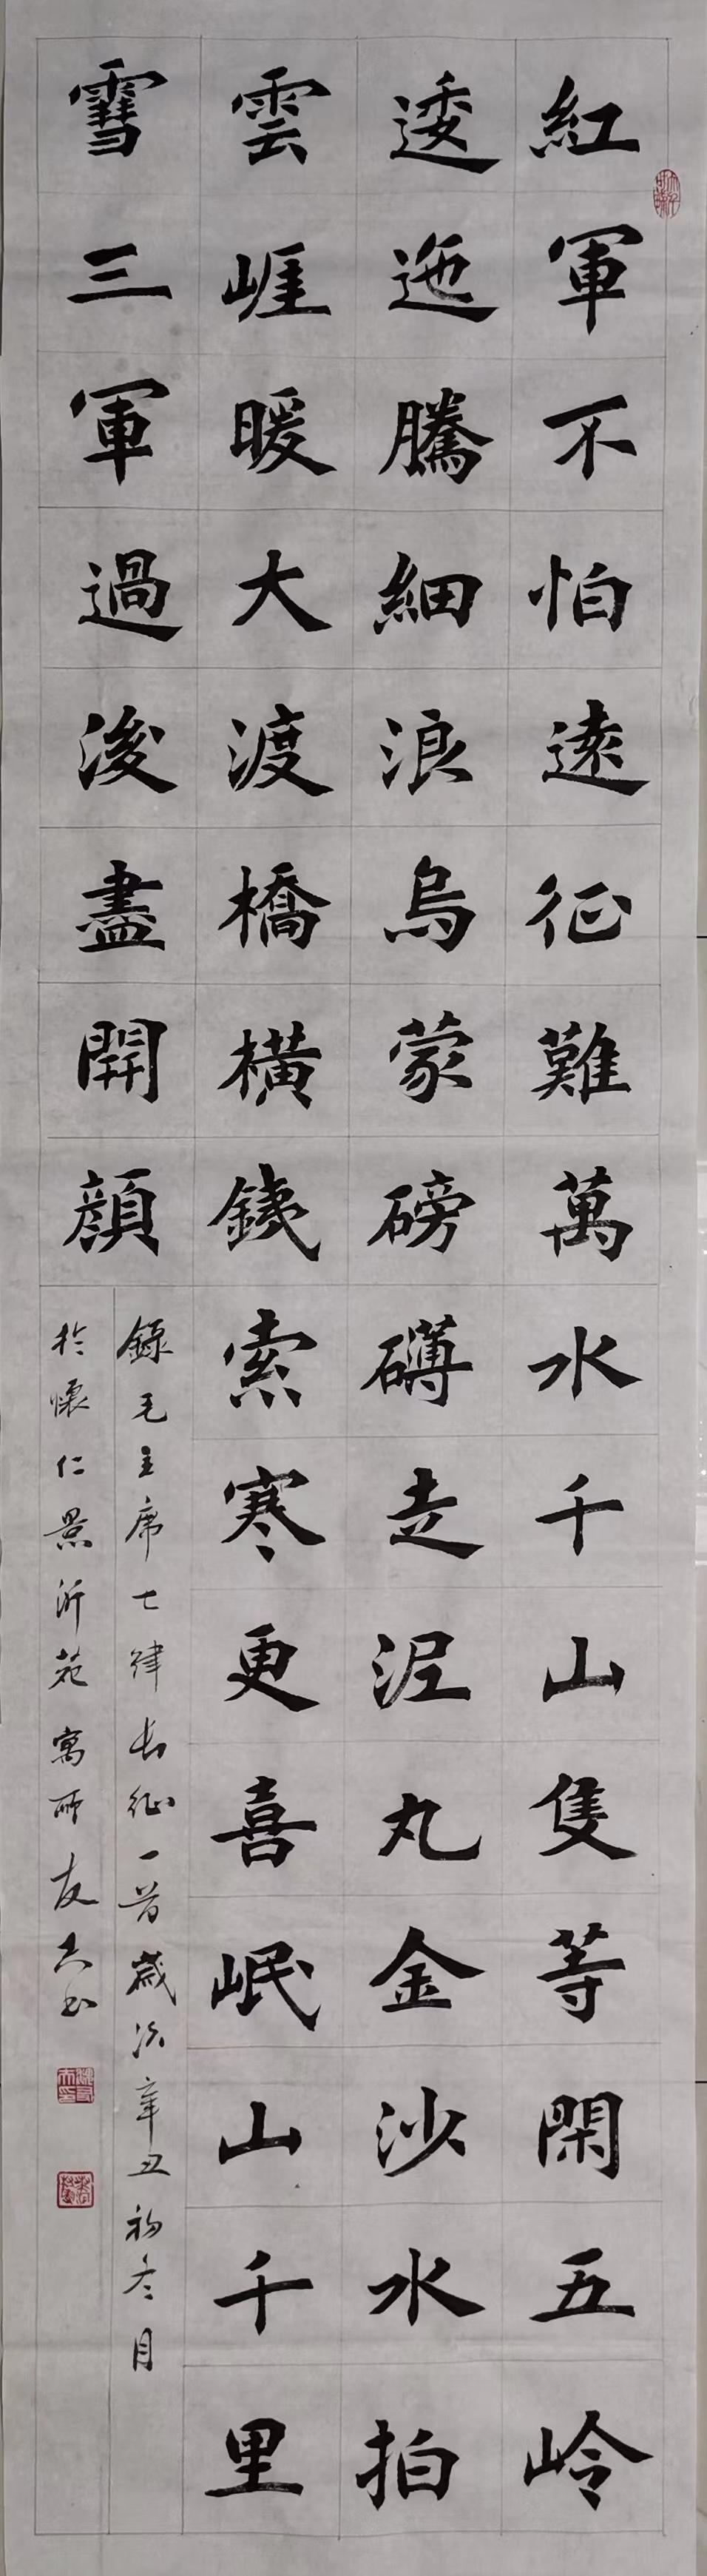 紅軍不怕遠征難萬水千山隻等閑五岭
逶迤騰細浪烏蒙磅礴走泥丸金沙水拍
雲崕暖大渡橋橫鐵索寒更喜岷山千里
雪三軍過後盡開顏
錄毛主席七律長征一首歲次辛丑初冬月
於懷仁景沂苑寓所友书